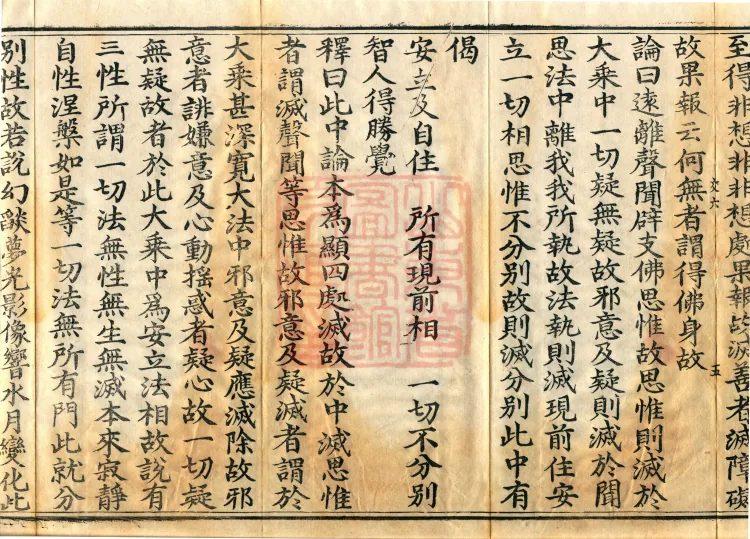 至得非想非非想處果報皆滅善者滅障礙
故果報云何無者謂得佛身故
论曰遠離聲聞辟支佛思惟故思惟則滅於
大乘中一切疑無疑故邪意及疑則滅於聞
思法中離我我所執故法執則滅現前住安
立一切相思惟不分別故則滅分別此中有
偈
安立及自住　所有現前相　一切不分別
智人得勝覺
釋曰此中論本為顯四處滅故於中滅思惟
者謂滅聲聞等思惟故邪意及疑滅者謂於
大乘甚深寬大法中邪意及疑應滅除故邪
意者誹嫌意及心動搖惑者疑心故一切疑
無疑故者於此大乘中為安立法相故說有
三性所謂一切法無性無生無滅本來寂靜
自性涅槃如是等一切法無所有門此就分
別性故若說幻燄夢光影像響水月變化此
五